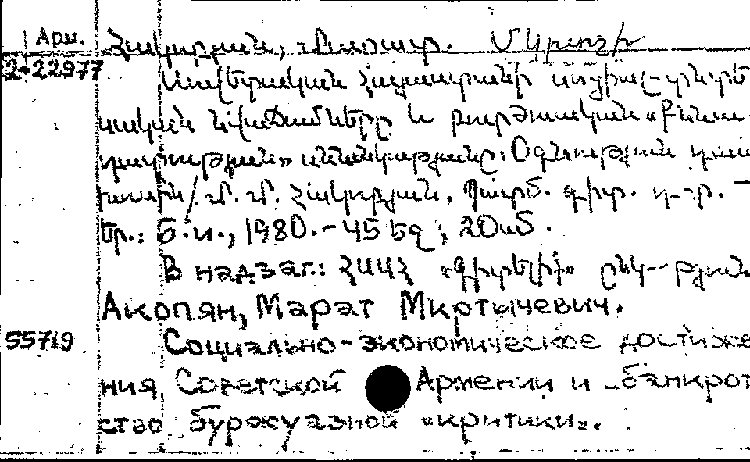 Арм. Հակոբյան, Մարատ. Մկրտչի
2-22977 Սովետական Հայաստանի սոցիալ-տնտե
սական նվաճումները և բուրժուական «քննա
դատության» սնանկությունը:
Մ. Մ. Հակոբյան,
Եր.: Б.и., 1980.- 45 էջ; 20սմ.
В надзаг.: ՀՍՍՀ «Գիտելիք» ընկ-
Акопян, Марат Мкртычевич.
55719 Социально-экономическое достиже
ния Советской Армении и банкрот
ство буржуазной «критики».